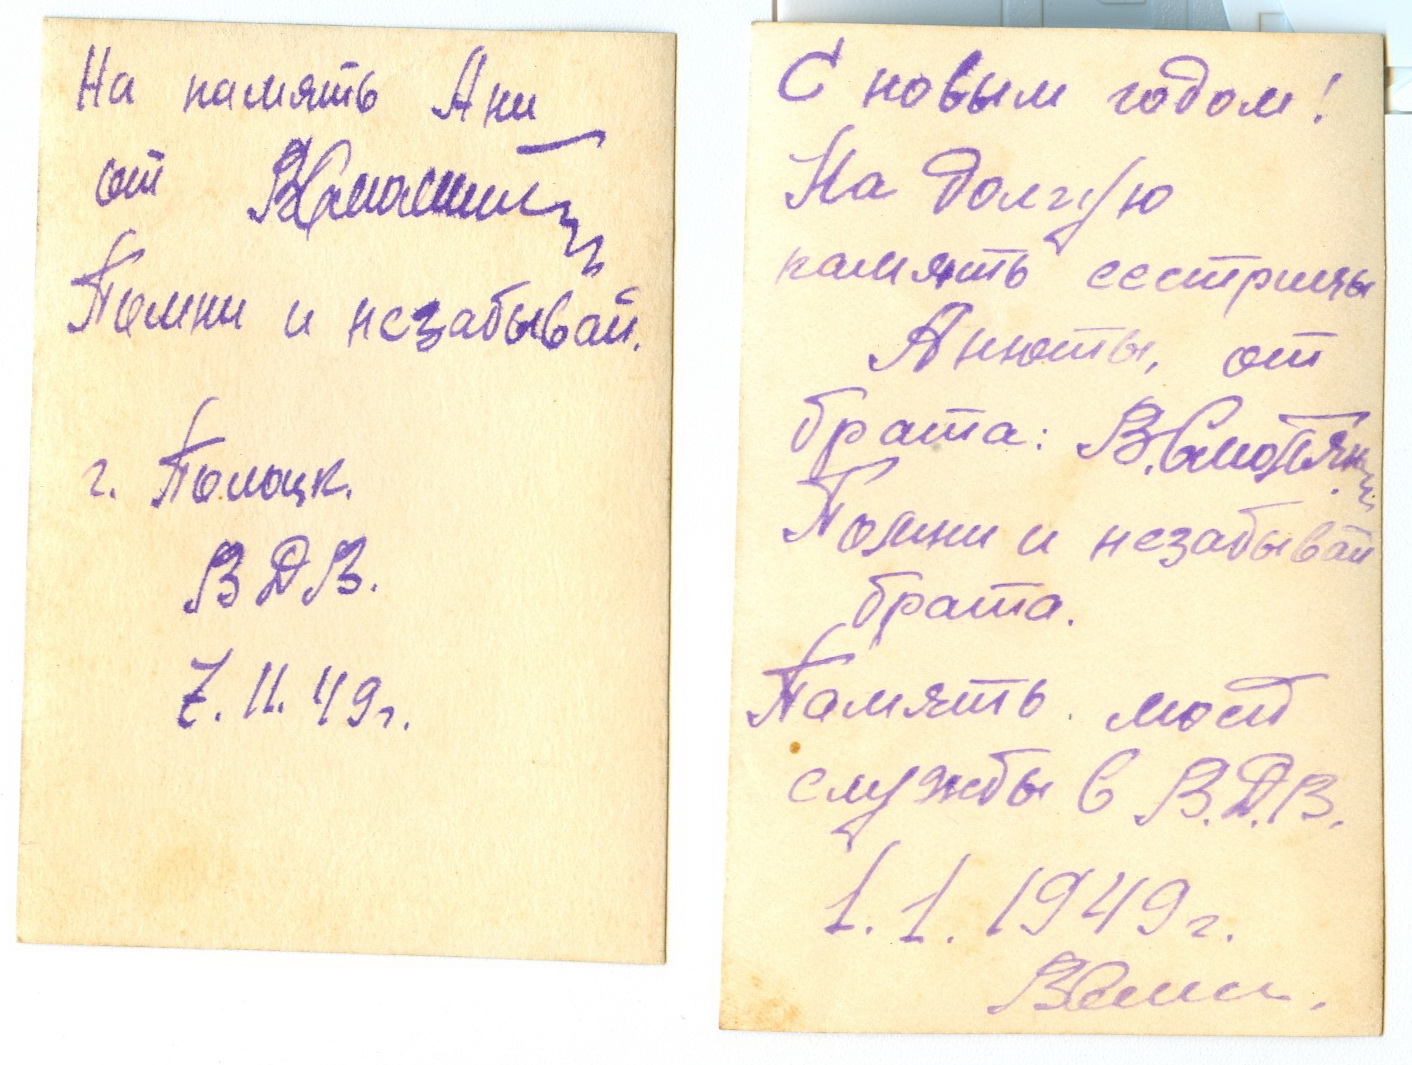 На память Ани
от
Помни и незабывай.
г. Полоцк.
ВДВ.
7.11.49г.
С новым годом!
На долгую
память сестрицы
Анюты, от
брата: В.
Помни и незабывай
брата.
Память моей
службы в В.Д.В.
1.1.1949г.